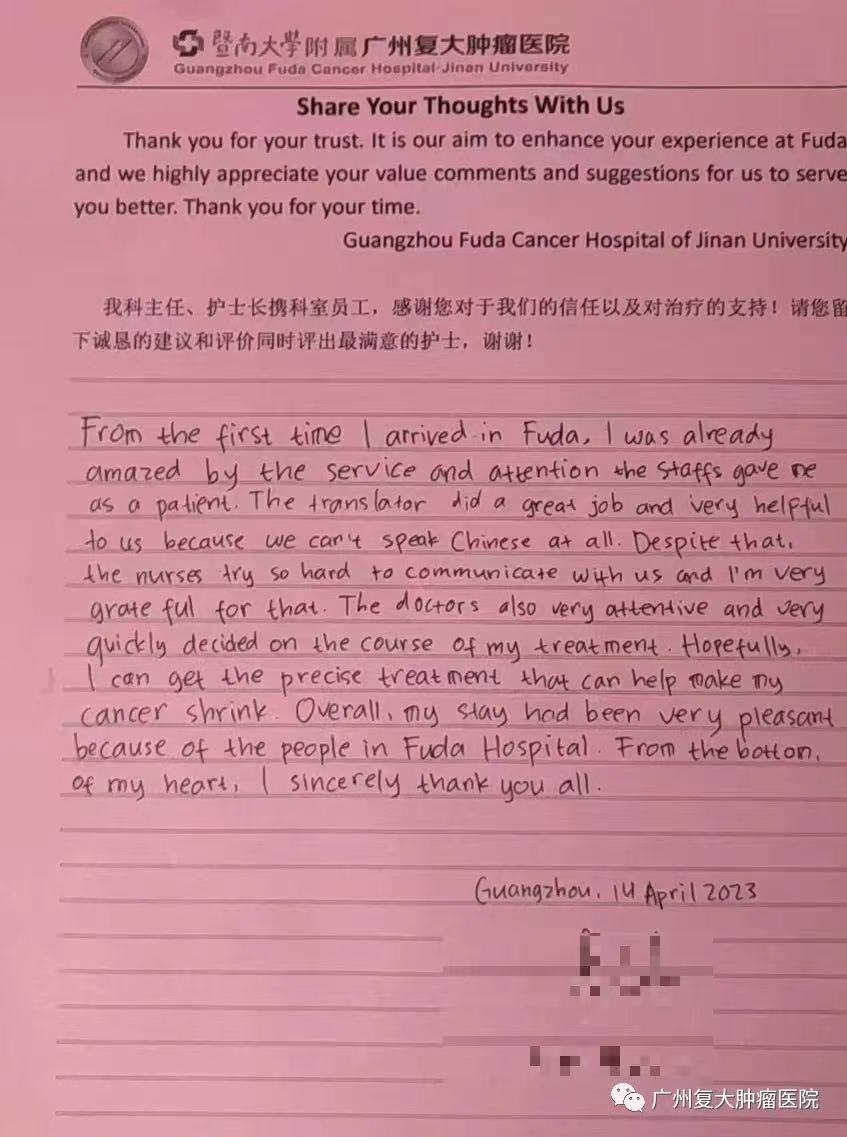 暨南大学附属广州复大肿瘤医院
Guangzhou Fuda Cancer Hospital Jinan University
Share Your Thoughts With Us
Thank you for your trust. It is our aim to enhance your experience at Fuda
and we highly appreciate your value comments and suggestions for us to serve
you better. Thank you for your time.
Guangzhou Fuda Cancer Hospital of Jinan University
我科主任、护士长携科室员工，感谢您对于我们的信任以及对治疗的支持！请您留
下诚恳的建议和评价同时评出最满意的护士，谢谢！
From the first time I arrived in Fuda, I was already
amazed by the service and attention the staffs gave me
as a patient. The translator did a great job and very helpful
to us because we can't speak Chinese at all. Despite that,
the nurses try so hard to communicate with us and I'm very
grateful for that. The doctors also very attentive and very
quickly decided on the course of my treatment. Hopefully,
I can get the precise treatment that can help make my
cancer shrink. Overall, my stay had been very pleasant
because of the people in Fuda Hospital. From the bottom,
of my heart, I sincerely thank you all.
Guangzhou, 14 April 2023
广州复大肿瘤医院